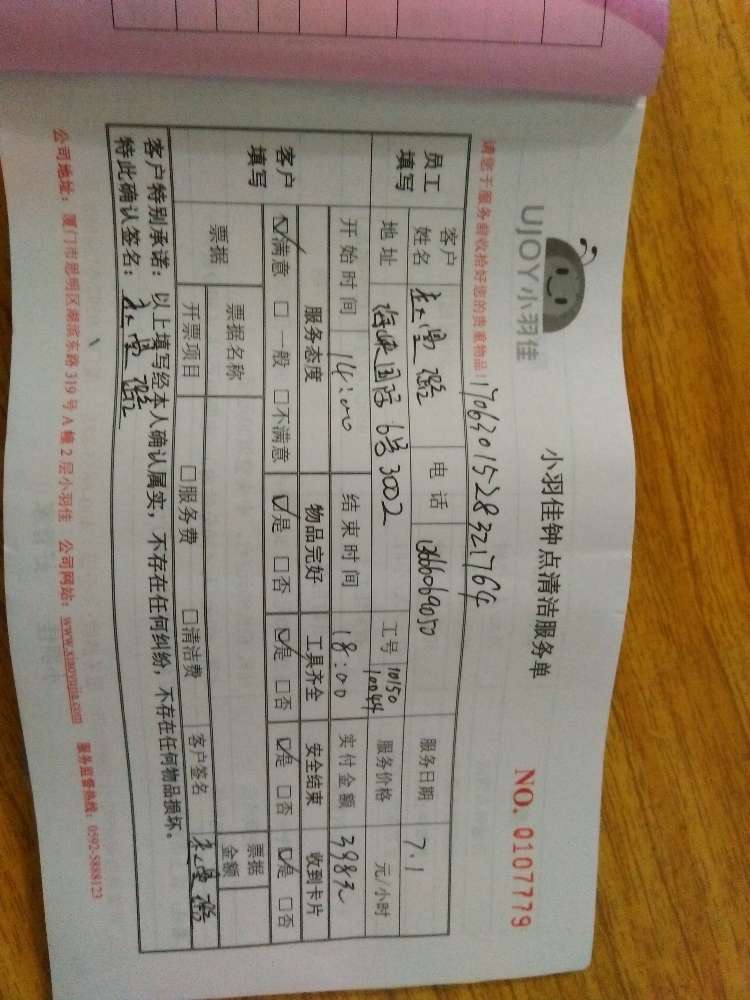 UJOY小羽佳
小羽佳钟点清洁服务单
NO. 0107779
请您于服务前收检好您的贵重物品！
1706301528321764
员工填写 客户姓名 电话 13666069050 服务日期 7.1
地址 海峡国际6号3002 工号 10150 10044 服务价格 元/小时
开始时间 14:00 结束时间 18:00 实付金额 398元
客户填写 服务态度 物品完好 工具齐全 安全结束 收到卡片
☑满意 □一般 □不满意 ☑是 □否 ☑是 □否 ☑是 □否 ☑是 □否
票据 票据名称 票据金额
开票项目 □服务费 □清洁费 客户签名
客户特别承诺：以上填写经本人确认属实，不存在任何纠纷，不存在任何物品损坏。
特此确认签名：
公司地址：厦门市思明区湖滨东路319号A幢2层小羽佳 公司网站：www.xiaoyujia.com 服务监督热线：0592-5888123